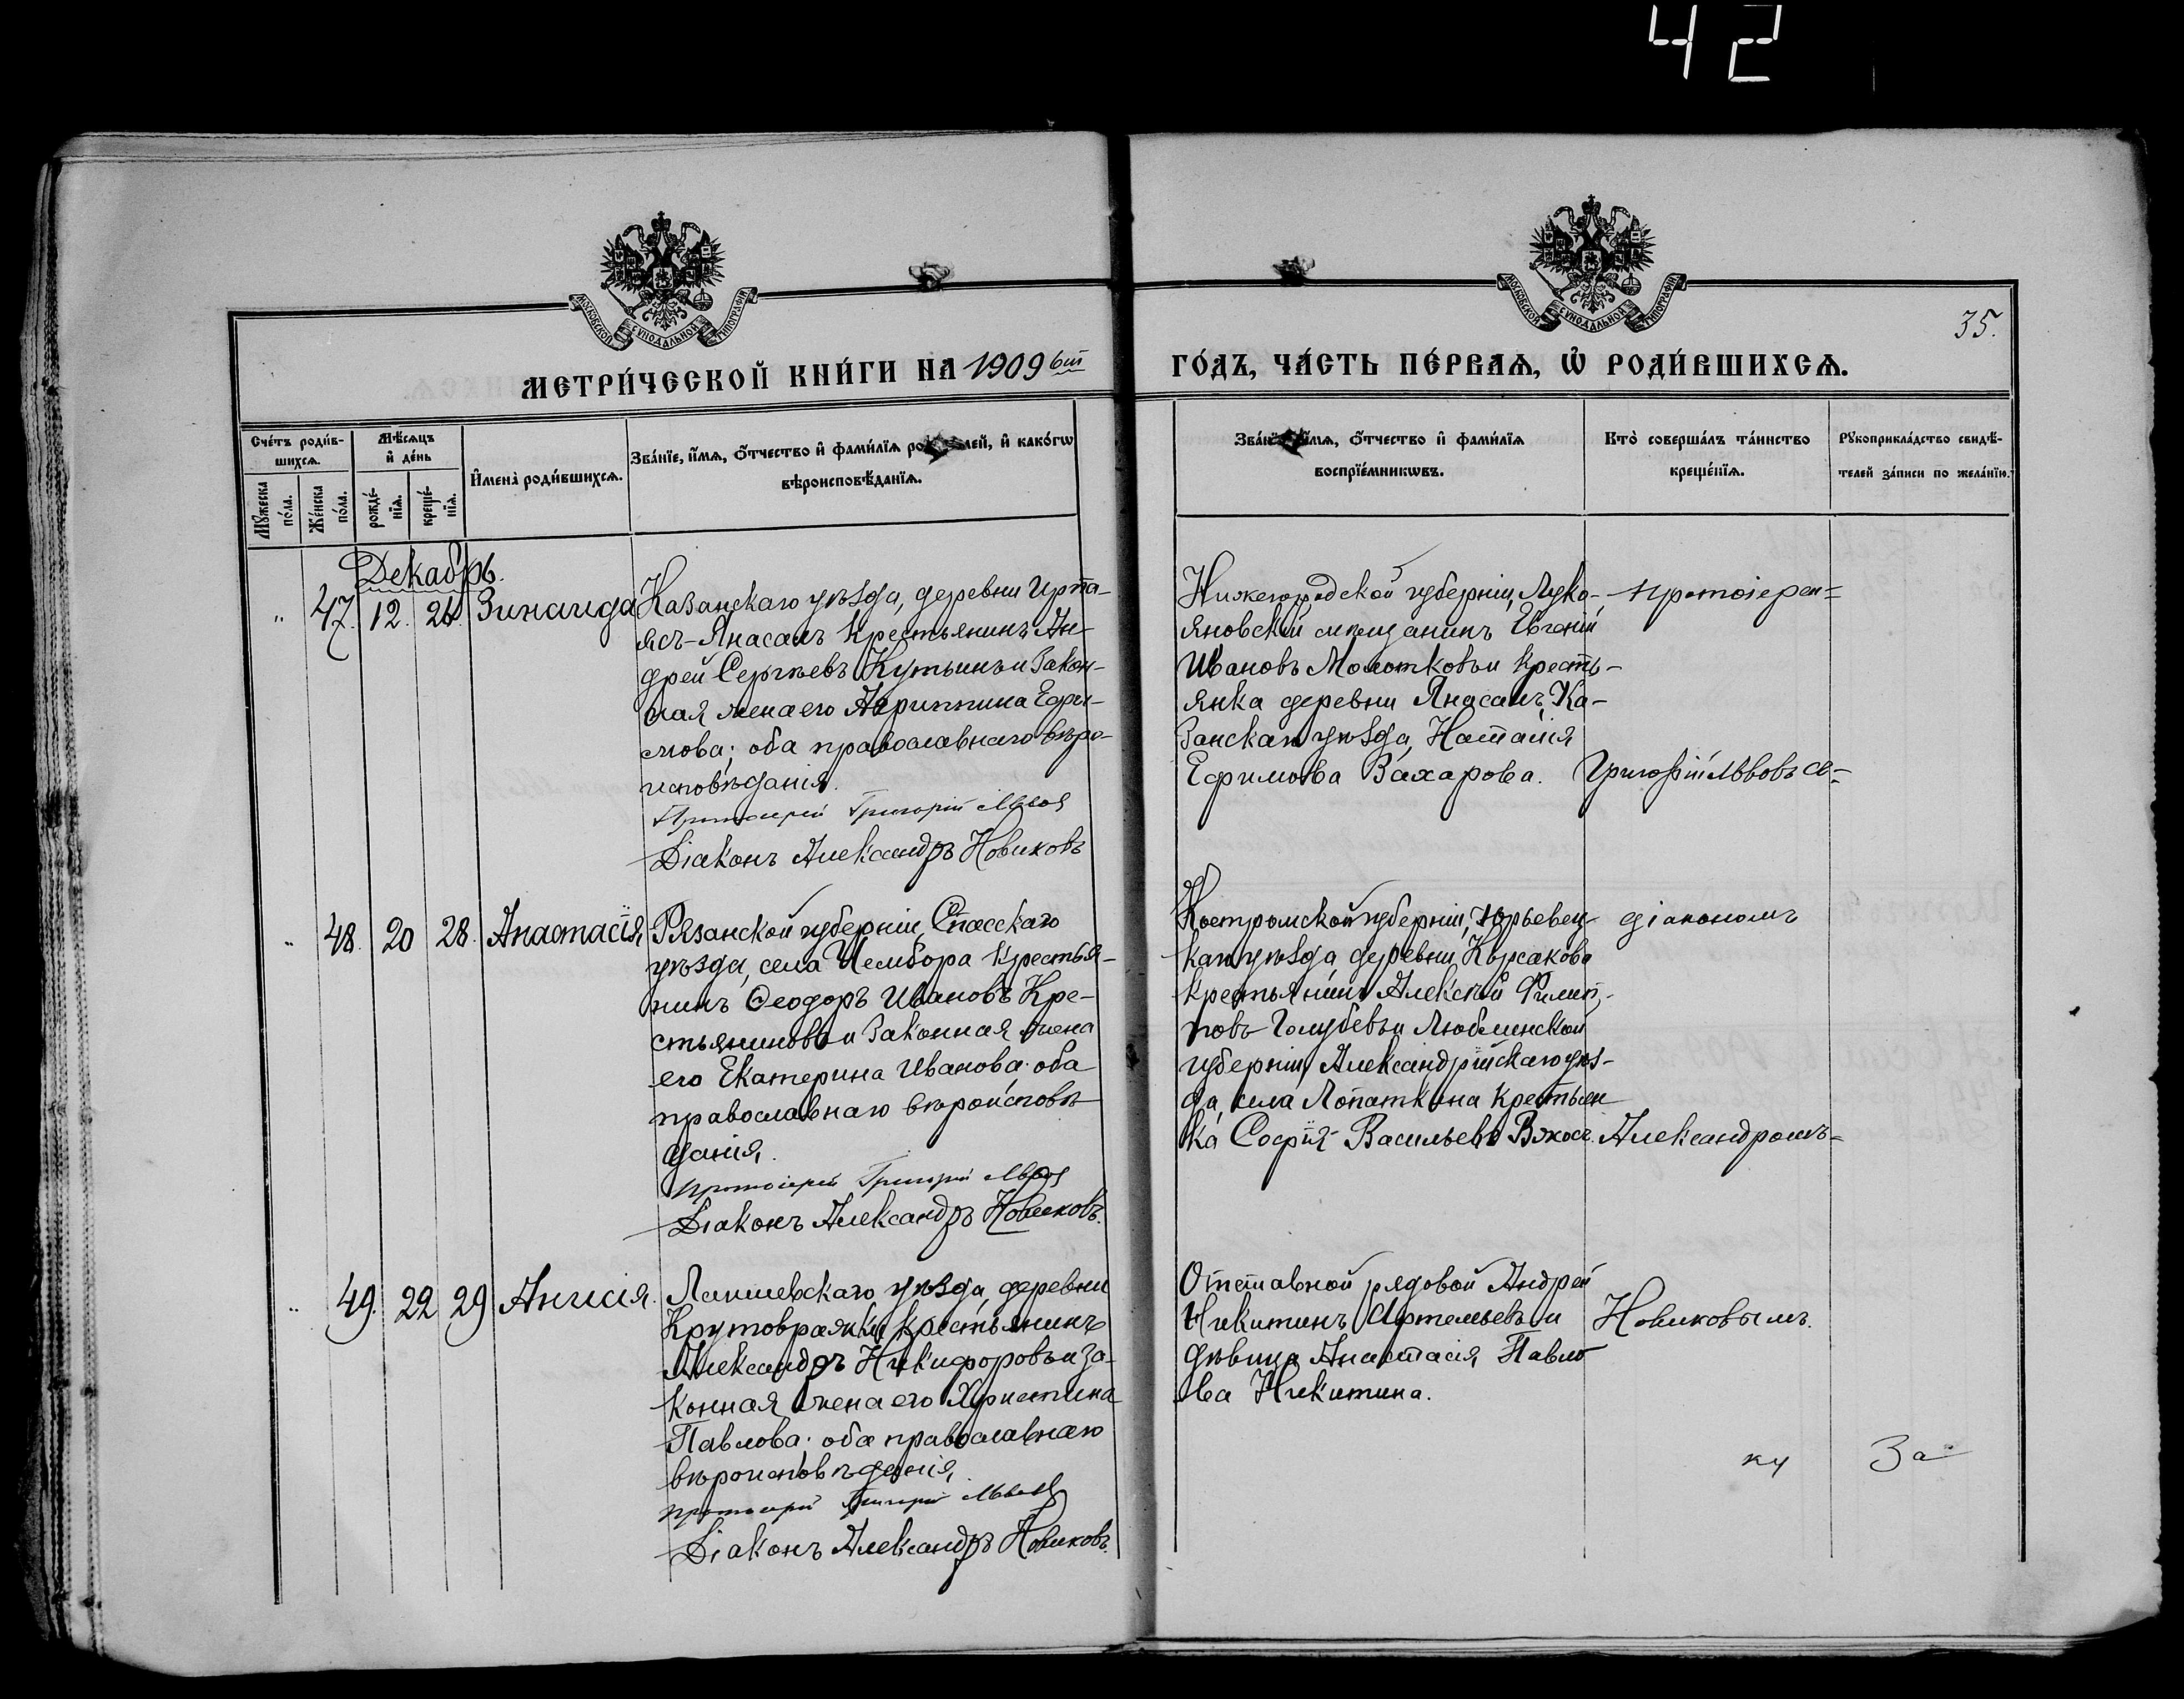 42
МОСКОВСКОЙ СѴНОДАЛЬНОЙ ТИПОГРАФІИ
МОСКОВСКОЙ СѴНОДАЛЬНОЙ ТИПОГРАФІИ
35.
МЕТРИ́ЧЕСКОЙ КНИ́ГИ НА 1909 ый
ГО́ДЪ, ЧА́СТЬ ПЕ́РВАѦ, Ѡ РОДИ́ВШИХСѦ.
Сче́тъ роди́в-
шихсѧ.
Мѣ́сѧцъ
и҆ де́нь
Мꙋ́жеска
по́ла.
Же́нска
по́ла.
рожде́-
нїѧ.
креще́-
нїѧ.
И҆мена̀ роди́вшихсѧ.
Зва́нїе, и҆́мѧ, ѻ҆́тчество и҆ фами́лїѧ родителей, и҆ како́гѡ
вѣроисповѣ́данїѧ.
Зва́нїе, и҆́мѧ, ѻ҆́тчество и҆ фами́лїѧ
воспрїе́мникѡвъ.
Кто̀ соверша́лъ та́инство
креще́нїѧ.
Рꙋкоприкла́дство свидѣ́-
телей за́писи по жела́нїю.
Декабрь.
" 47. 12. 26. Зинаида
Казанскаго уѣзда, деревни Урта-
ясъ-Янасалъ крестьянинъ Ан-
дрей Сергѣевъ Кутьинъ и закон-
ная жена его Агриппина Ефи-
мова; оба православнаго вѣро-
исповѣданія.
Протоіерей Григорій Львовъ
Діаконъ Александръ Новиковъ
Нижегородской губерніи, Луко-
яновскій мѣщанинъ Евгеній
Ивановъ Молотковъ и кресть-
янка деревни Янасалъ, Ка-
занскаго уѣзда, Наталія
Ефимова Захарова.
Протоіерей=
Григорій Львовъ съ=
" 48. 20 28. Анастасія,
Рязанской губерніи, Спасскаго
уѣзда, села Чембора крестья-
нинъ Ѳеодоръ Ивановъ Кре-
стьяниновъ и законная жена
его Екатерина Иванова; оба
православнаго вѣроисповѣ-
данія.
Протоіерей Григорій Львовъ
Діаконъ Александръ Новиковъ.
Костромской губерніи, Юрьевец-
каго уѣзда, деревни Корсакова
крестьянинъ Алексѣй Филип-
повъ Голубевъ и Люблинской
губерніи Александрійскаго уѣз-
да, села Лопаткина крестьян-
ка Софія Васильева
діакономъ
Александромъ=
" 49. 22 29 Анисія.
Лаишевскаго уѣзда, деревни
Крутовражки крестьянинъ
Александръ Никифоровъ и за-
конная жена его Христина
Павлова; оба православнаго
вѣроисповѣданія.
Протоіерей Григорій Львовъ
Діаконъ Александръ Новиковъ.
Отставной рядовой Андрей
Никитинъ Артемьевъ и
дѣвица Анастасія Павло-
ва Никитина.
Новиковымъ.
ку
За